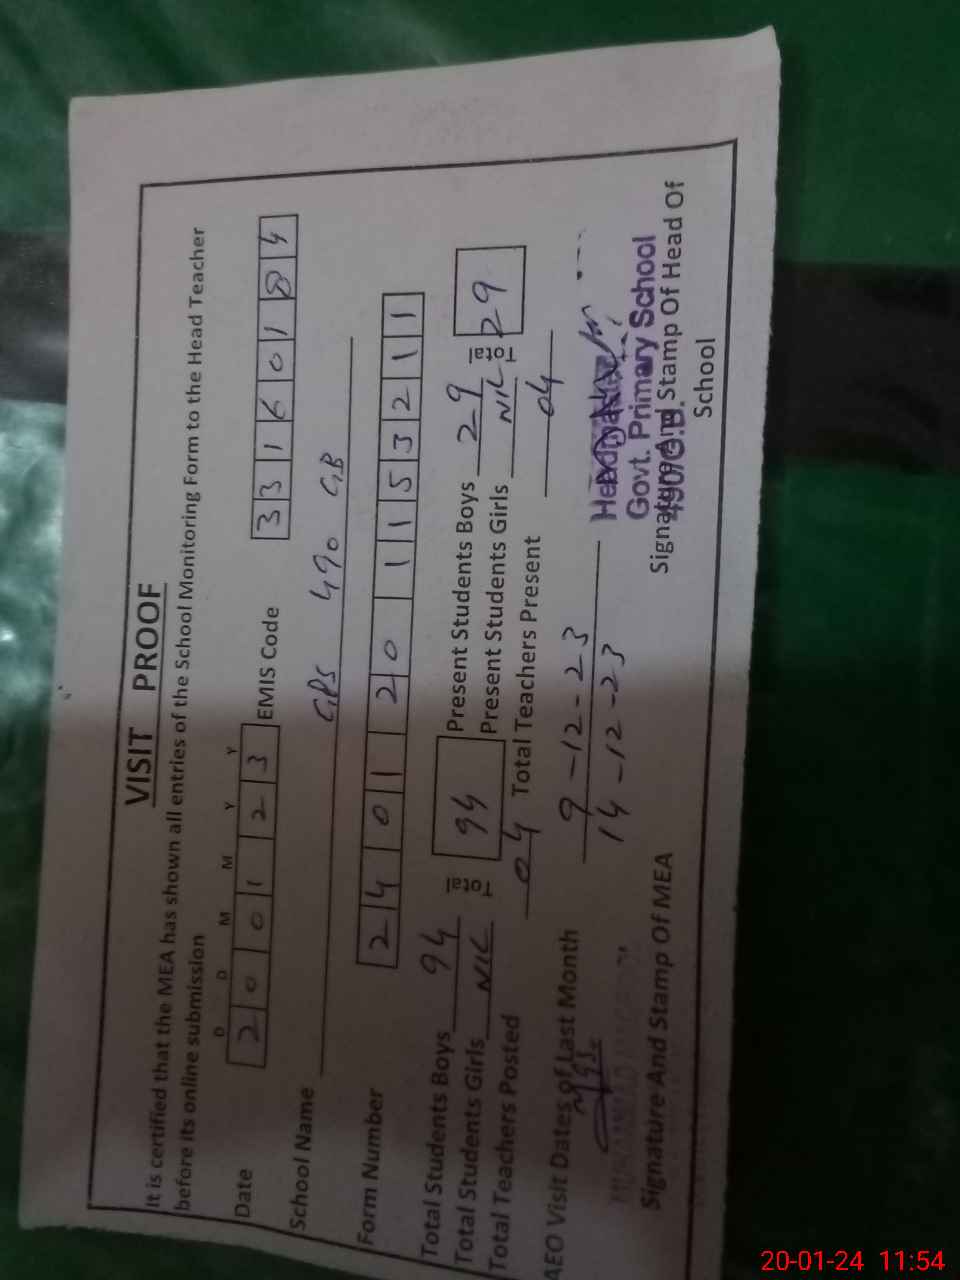 VISIT PROOF
It is certified that the MEA has shown all entries of the School Monitoring Form to the Head Teacher
before its online submission
D D M M Y Y
Date 2 0 0 1 2 3 EMIS Code 3 3 1 6 0 1 8 4
School Name GPS 490 GB
Form Number 2 4 0 1 2 0 1 1 5 3 2 1 1
Total Students Boys 94 Total 94 Present Students Boys 29 Total 29
Total Students Girls NIL Present Students Girls NIL
Total Teachers Posted 04 Total Teachers Present 04
AEO Visit Dates of Last Month 9-12-23
14-12-23
Headmaster
Govt. Primary School
490/G.B.
Signature And Stamp Of MEA Signature And Stamp Of Head Of
School
20-01-24 11:54